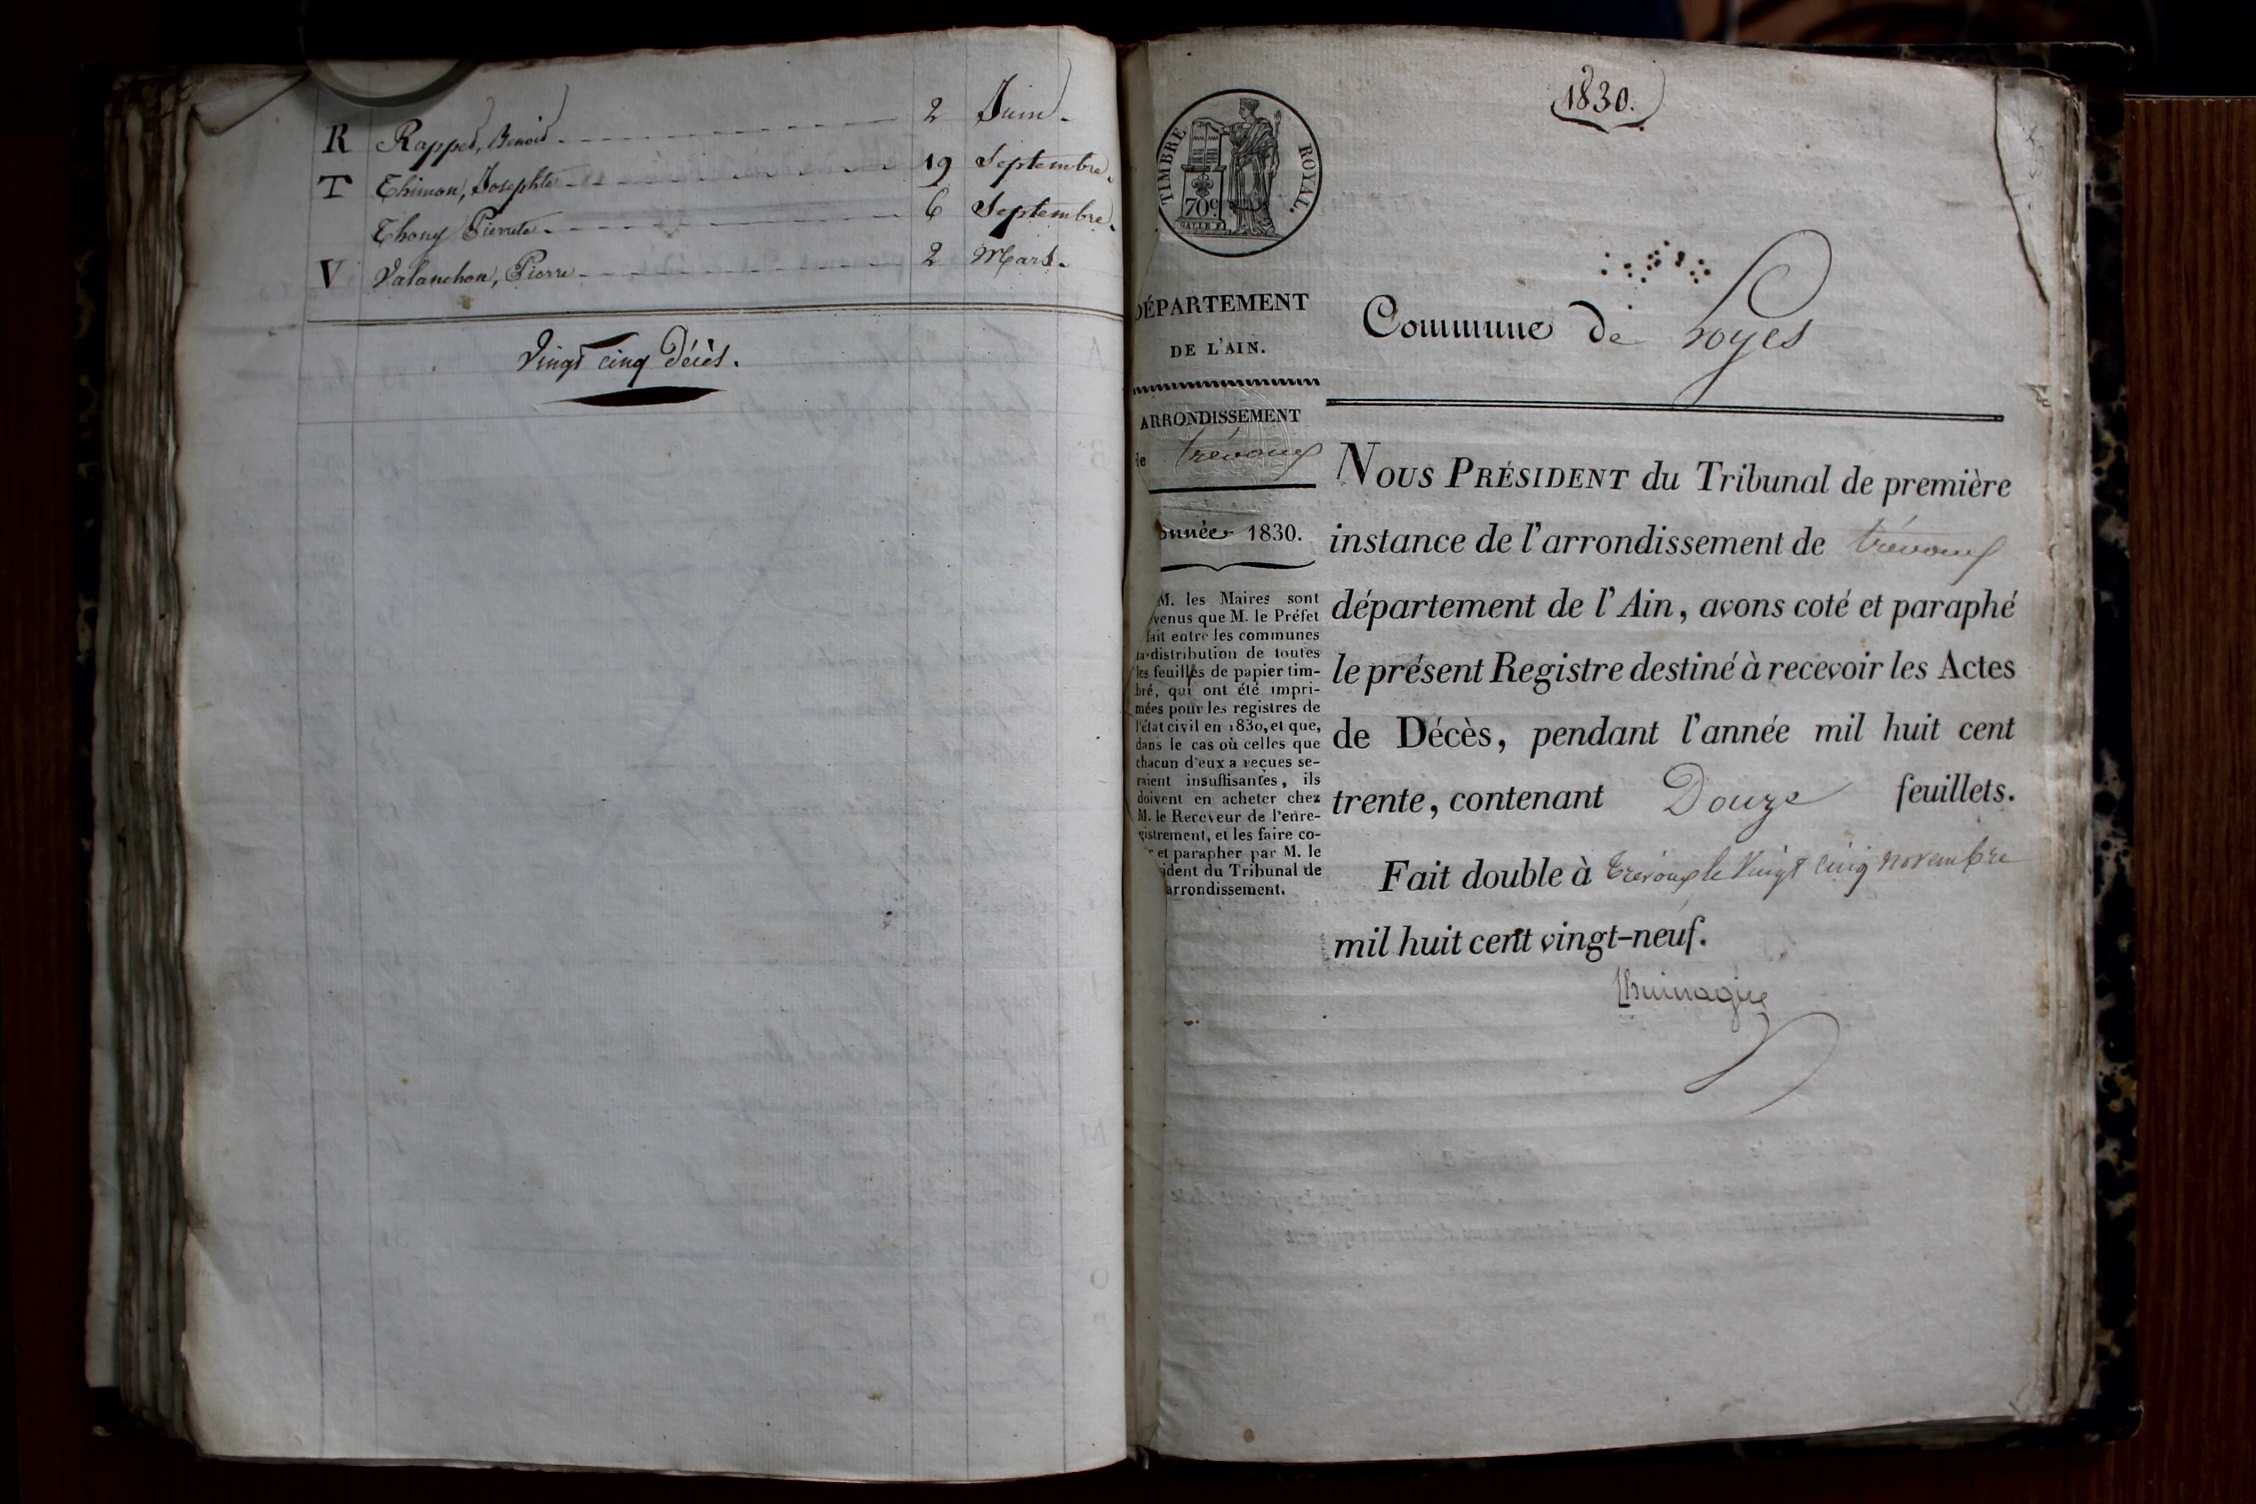 R Rappet, Benoit 2 Juin
T Thimon, Josephte 19 Septembre
Thony Pierrette 6 Septembre
V Valanchon, Pierre 2 Mars
Vingt cinq Décès.
1830.
TIMBRE ROYAL.
70c
DÉPARTEMENT
DE L'AIN.
Commune de Loyes
ARRONDISSEMENT
de trévoux
Année 1830.
M. les Maires sont
venus que M. le Préfet
fait entre les communes
la distribution de toutes
les feuilles de papier tim-
bré, qui ont été impri-
mées pour les registres de
l'état civil en 1830, et que,
dans le cas où celles que
chacun d'eux a reçues se-
raient insuffisantes, ils
doivent en acheter chez
M. le Receveur de l'enre-
gistrement, et les faire co-
et parapher par M. le
ident du Tribunal de
arrondissement.
NOUS PRÉSIDENT du Tribunal de première
instance de l'arrondissement de trévoux
département de l'Ain, avons coté et paraphé
le présent Registre destiné à recevoir les Actes
de Décès, pendant l'année mil huit cent
trente, contenant Douze feuillets.
Fait double à trévoux le Vingt cinq novembre
mil huit cent vingt-neuf.